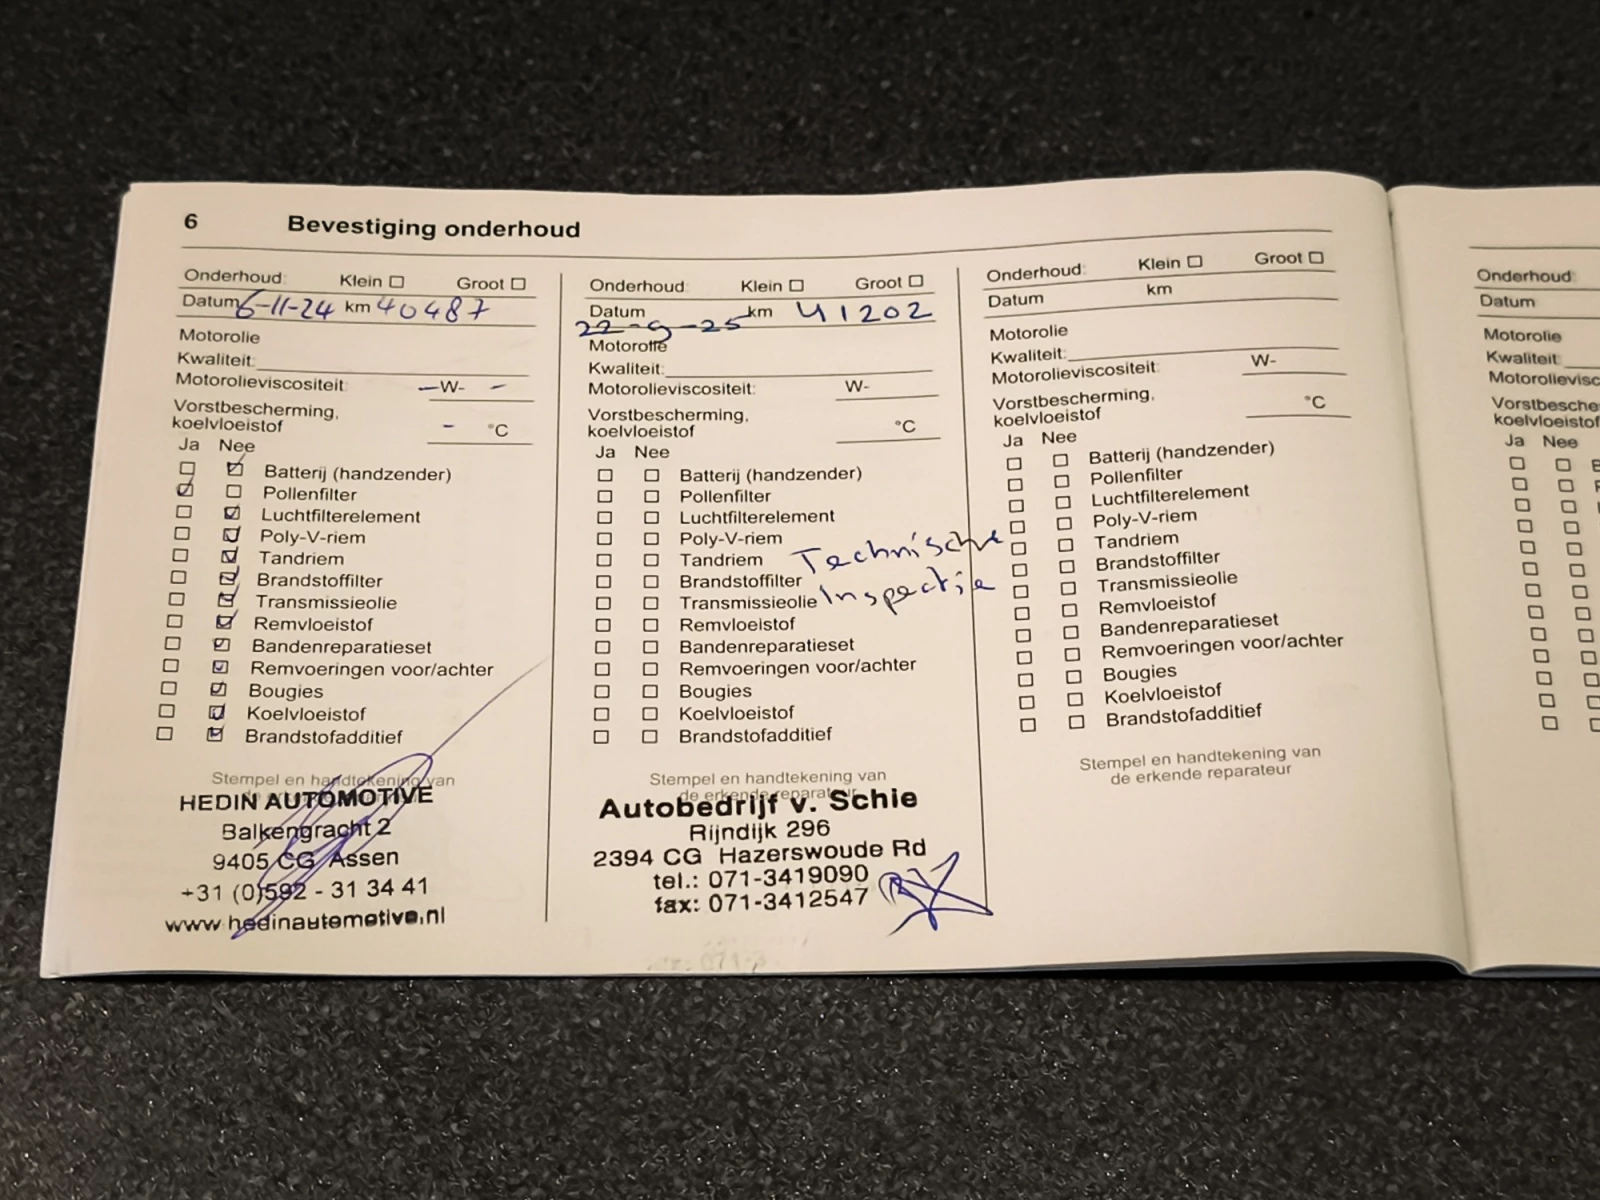 6 Bevestiging onderhoud
Onderhoud: Klein Groot
Datum 6-11-24 km 40487
Motorolie
Kwaliteit:
Motorolieviscositeit: - W- -
Vorstbescherming,
koelvloeistof - °C
Ja Nee
Batterij (handzender)
Pollenfilter
Luchtfilterelement
Poly-V-riem
Tandriem
Brandstoffilter
Transmissieolie
Remvloeistof
Bandenreparatieset
Remvoeringen voor/achter
Bougies
Koelvloeistof
Brandstofadditief
Stempel en handtekening van
de erkende reparateur
HEDIN AUTOMOTIVE
Balkengracht 2
9405 CG Assen
+31 (0)592 - 31 34 41
www.hedinautomotive.nl
Onderhoud: Klein Groot
Datum km 41202
22-9-25
Motorolie
Kwaliteit:
Motorolieviscositeit: W-
Vorstbescherming,
koelvloeistof °C
Ja Nee
Batterij (handzender)
Pollenfilter
Luchtfilterelement
Poly-V-riem
Tandriem Technische
Brandstoffilter
Transmissieolie Inspectie
Remvloeistof
Bandenreparatieset
Remvoeringen voor/achter
Bougies
Koelvloeistof
Brandstofadditief
Stempel en handtekening van
de erkende reparateur
Autobedrijf v. Schie
Rijndijk 296
2394 CG Hazerswoude Rd
tel.: 071-3419090
fax: 071-3412547
Onderhoud: Klein Groot
Datum km
Motorolie
Kwaliteit:
Motorolieviscositeit: W-
Vorstbescherming,
koelvloeistof °C
Ja Nee
Batterij (handzender)
Pollenfilter
Luchtfilterelement
Poly-V-riem
Tandriem
Brandstoffilter
Transmissieolie
Remvloeistof
Bandenreparatieset
Remvoeringen voor/achter
Bougies
Koelvloeistof
Brandstofadditief
Stempel en handtekening van
de erkende reparateur
Onderhoud:
Datum
Motorolie
Kwaliteit:
Ja Nee